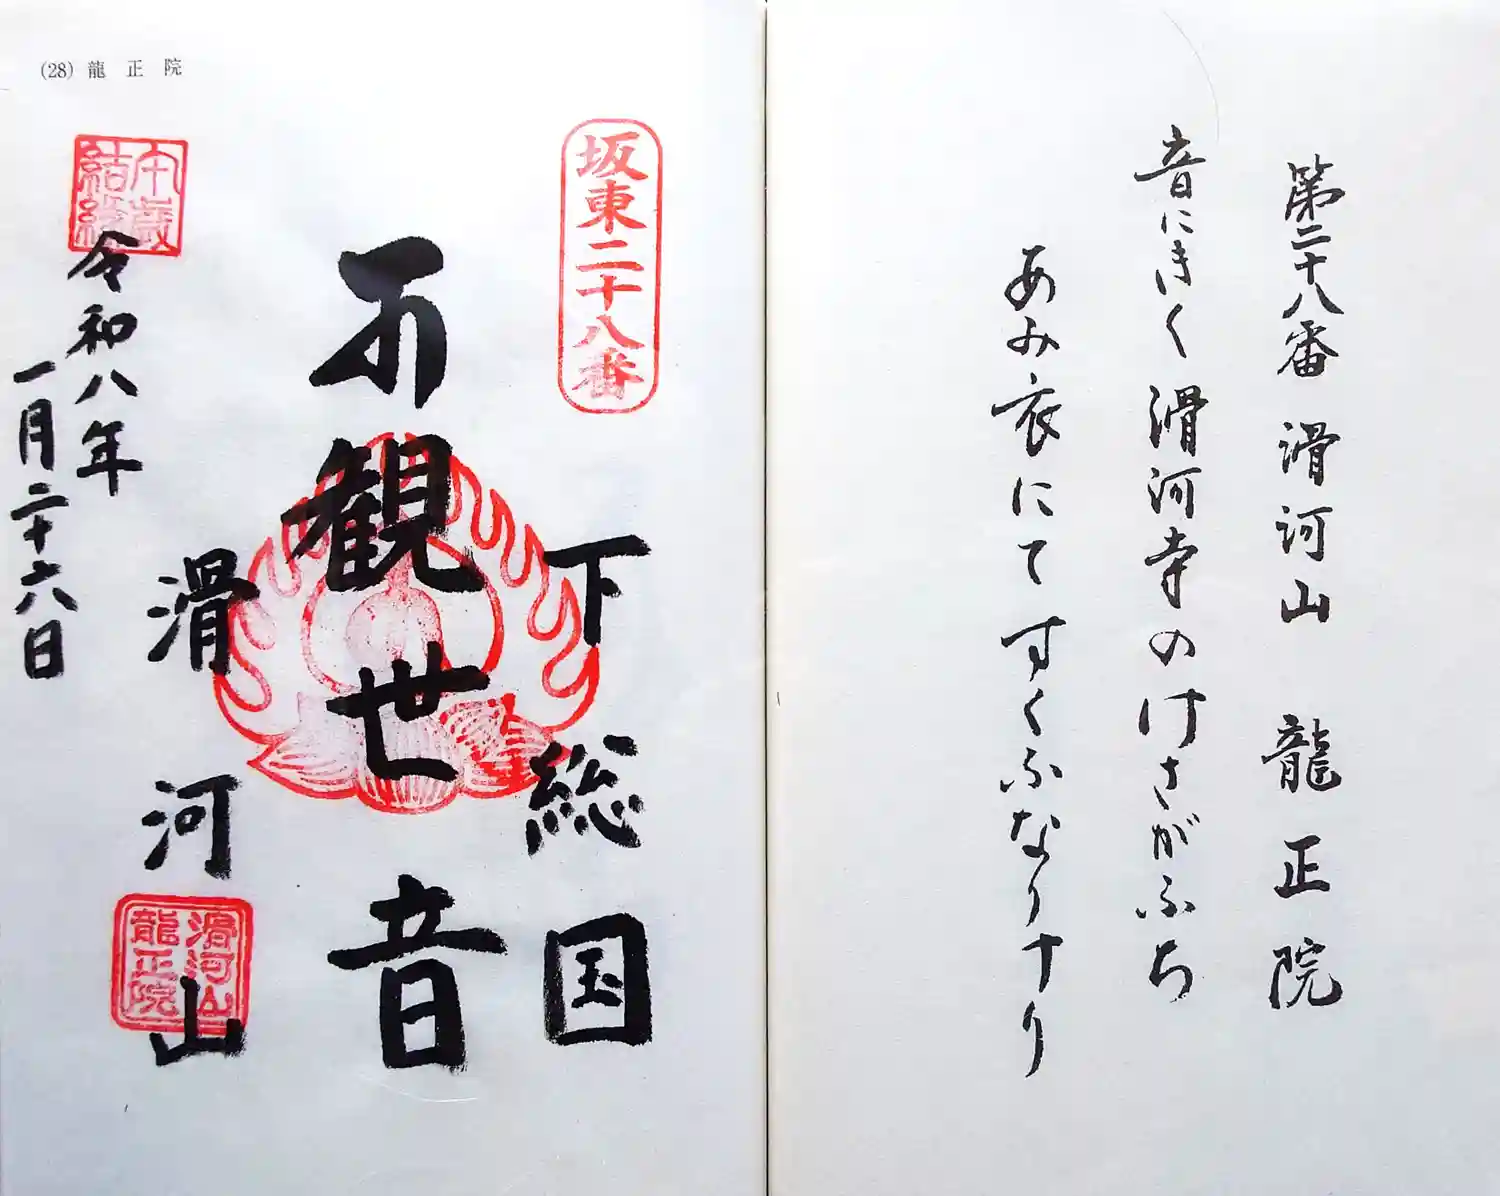 第二十八番 滑河山 龍正院
音にきく滑河寺のけさがふち
あみ衣にてすくふなりけり
(28) 龍正院
坂東二十八番
下総国
観世音
滑河山
午歳
結縁
令和八年
一月二十六日
滑河山
龍正院